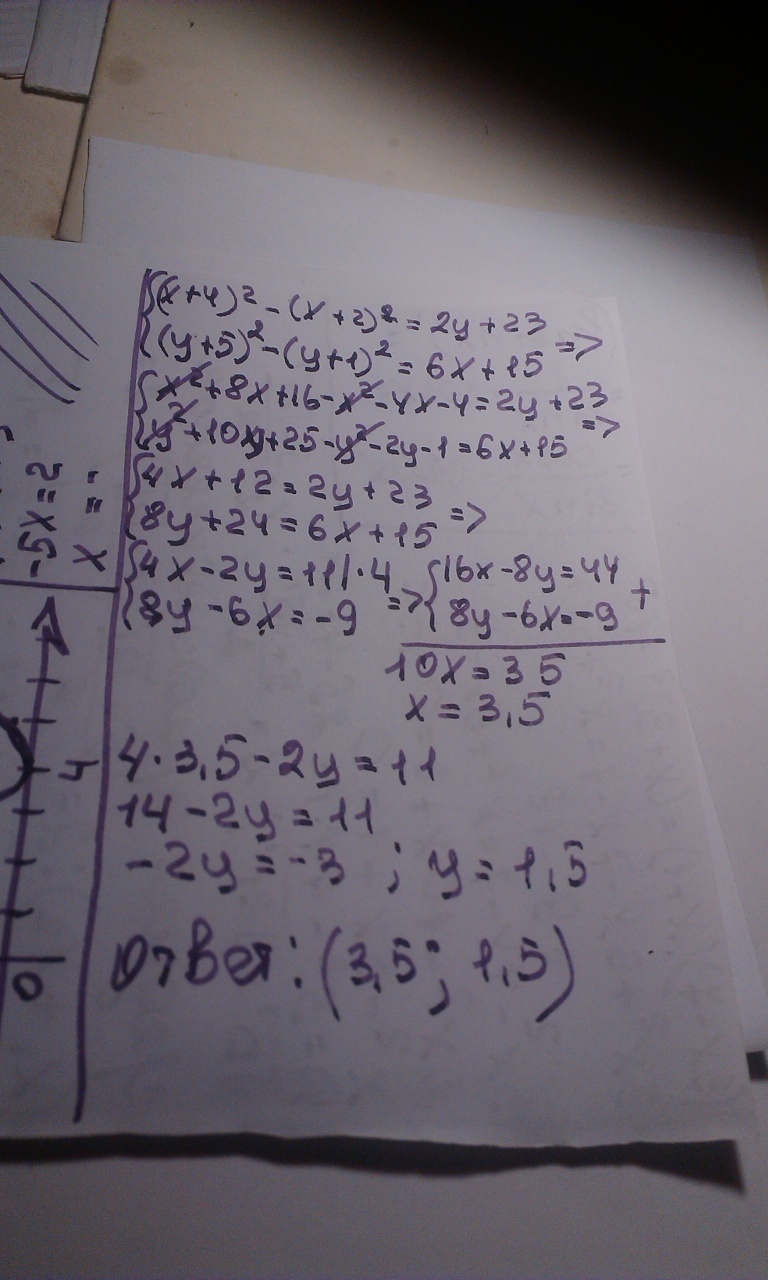 (x+4)² - (x+2)² = 2y+23
(y+5)² - (y+1)² = 6x+15 =>
x²+8x+16-x²-4x-4=2y+23
y²+10y+25-y²-2y-1=6x+15 =>
4x+12=2y+23
8y+24=6x+15 =>
4x-2y=11|·4
8y-6x=-9 =>
16x-8y=44
8y-6x=-9 +
10x=35
x=3,5
4·3,5-2y=11
14-2y=11
-2y=-3 ; y=1,5
Ответ: (3,5; 1,5)
-5x=2
x=-
4
0